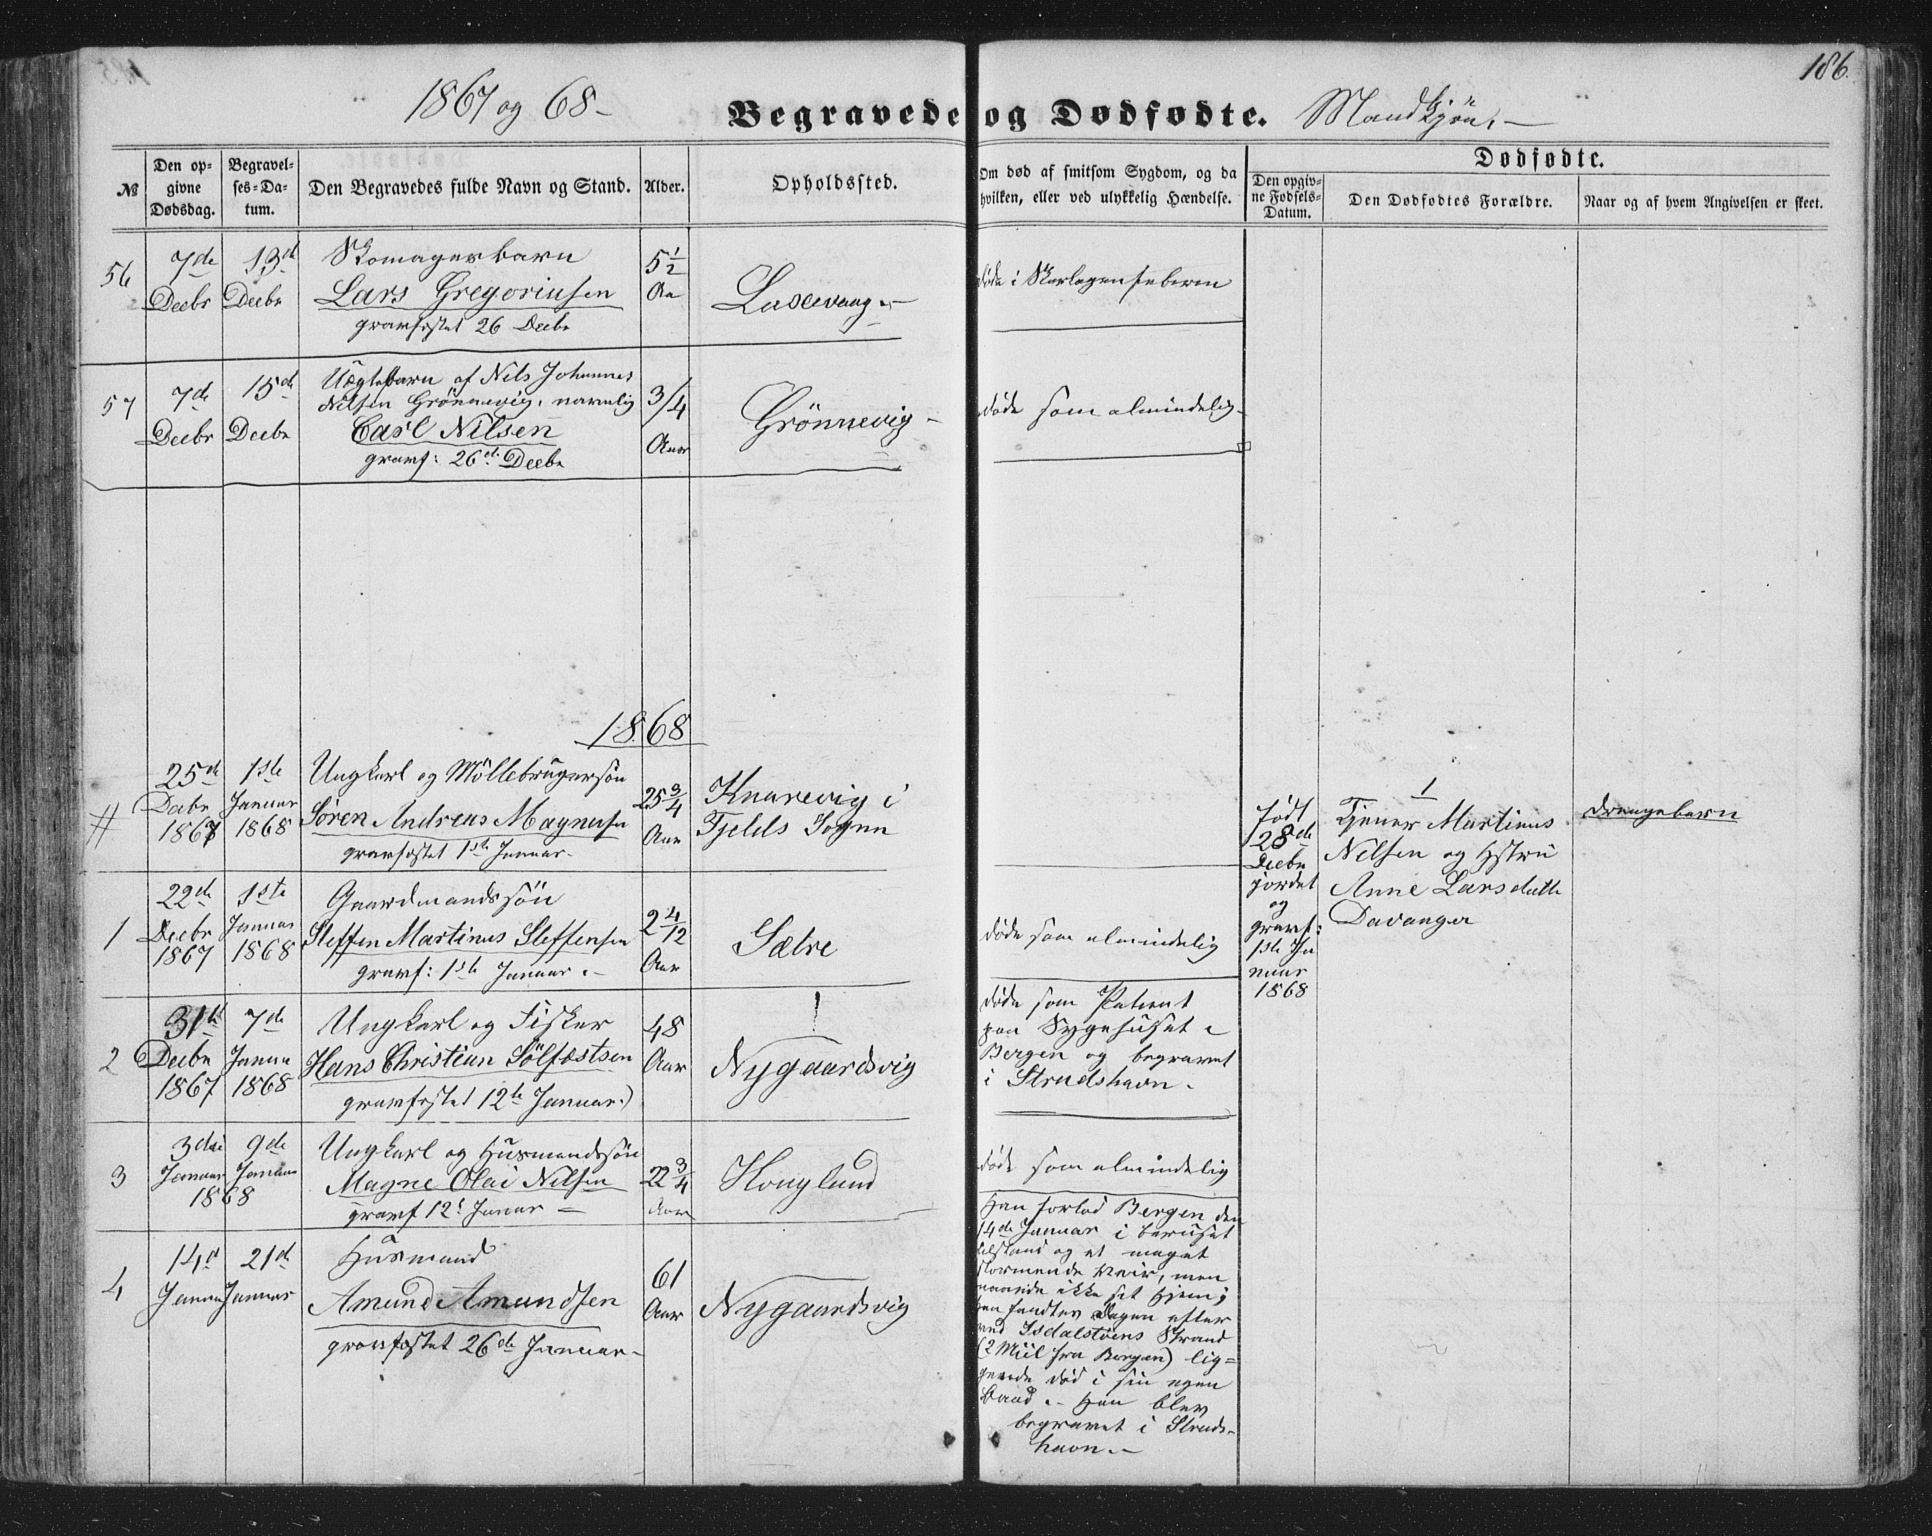 186.
1867 og 68-
Begravede og Dødfødte. Mandkjön.-
№
Den opgivne Dødsdag.
Begravelses-Datum.
Den Begravedes fulde Navn og Stand.
Alder.
Opholdssted.
Om død af smitsom Sygdom, og da
hvilken, eller ved ulykkelig Hændelse.
Dødfødte.
Den opgivne Fødsels-Datum.
Den Dødfødtes Forældre.
Naar og af hvem Angivelsen er skeet.
56
7de
Decbr
13d
Decbr
Skomagerbarn
Lars Gregoriusen
gravfæstet 26 Decbr
5 1/2
Aar
døde i Skarlagensfeberen
57
7de
Decbr
15de
Decbr
Uægtebarn af Nils Johannes
Nilsen Grönnevig, navnlig
Carl Nilsen
gravf: 26de Decbr
3/4
Aar
Grönnevig -
døde som almindelig-
1868
#
25de
Decbr
1867
1ste
Januar
1868
Ungkarl og Möllebrugersön
Sören Andreas Magnusen
gravfæstet 1ste Januar-
25 3/4
Aar
Knarevig i
Fjelds Sogn
født
28de
Decbr
jordet
og
gravf:
1ste Ja
nuar
1868
1
Tjener Martinus
Nilsen og Hstru
Anne Larsdatter
Davanger
Drengebarn
1
22de
Decbr
1867
1ste
Januar
1868
Gaardmandssön
Steffen Martinus Steffensen
gravf: 1ste Januar.-
2 4/12
Aar
Sætre
døde som almindelig
2
31te
Decbr
1867
7de
Januar
1868
Ungkarl og Fisker
Hans Christian Sölfæstsen
gravfæstet 12te Januar.)
48
Aar
Nygaardsvig
døde som Patient
paa Sygehuset i
Bergen og begravet
i Strudshavn.
3
3die
Januar
9de
Januar
1868
Ungkarl og Husmandssön
Magne Olai Nilsen
gravf 12te Januar -
22 3/4
Aar
Houglund
døde som almindelig
4
14d
Januar
21de
Januar
Husmand
Amund Amundsen
gravfæstet 26de Januar-
61
Aar
Nygaardsvig
Han forlod Bergen den
14de Januar i beruset
tilstand og et meget
stormende Veir, men
naaede ikke sit Hjem;
han fandtes Dagen efter
ved Isdalstöens Strand
(2 Miil fra Bergen) lig-
gende død i sin egen
Baad. - Han blev
begravet i Struds-
havn.-